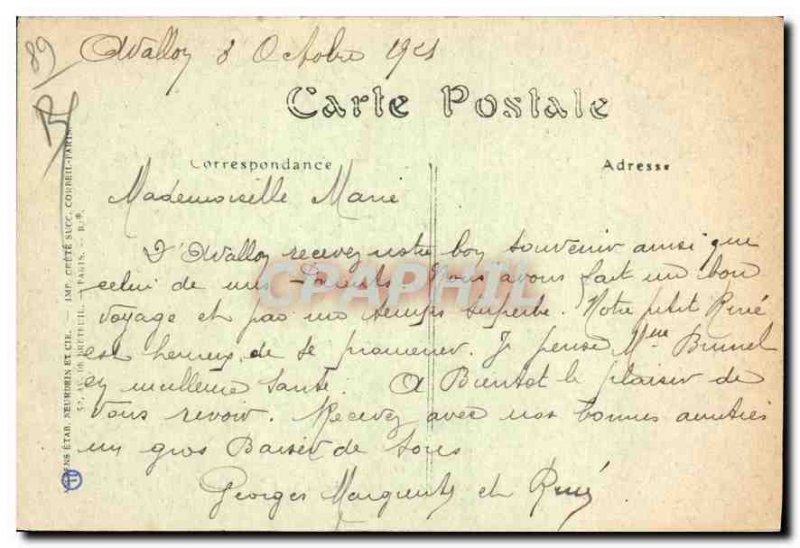 89
Avallon 8 Octobre 1921
Carte Postale
Correspondance
Adresse
Mademoiselle Marie
D'Avallon recevez notre bon souvenir ainsi que
celui de mes Parents. Nous avons fait un bon
voyage et par un temps superbe. Notre petit René
est heureux de se promener. Je pense Mme Brunel
en meilleure santé. A Bientot le plaisir de
vous revoir. Recevez avec nos bonnes amitiés
un gros Baiser de tous
Georges Marguerite et René
CAPHIL
ENS ÉTAB. NEURDEIN ET CIE. — IMP. CRÉTÉ SUCC. CORBEIL-PARIS
52, AV. DE BRETEUIL. — PARIS.